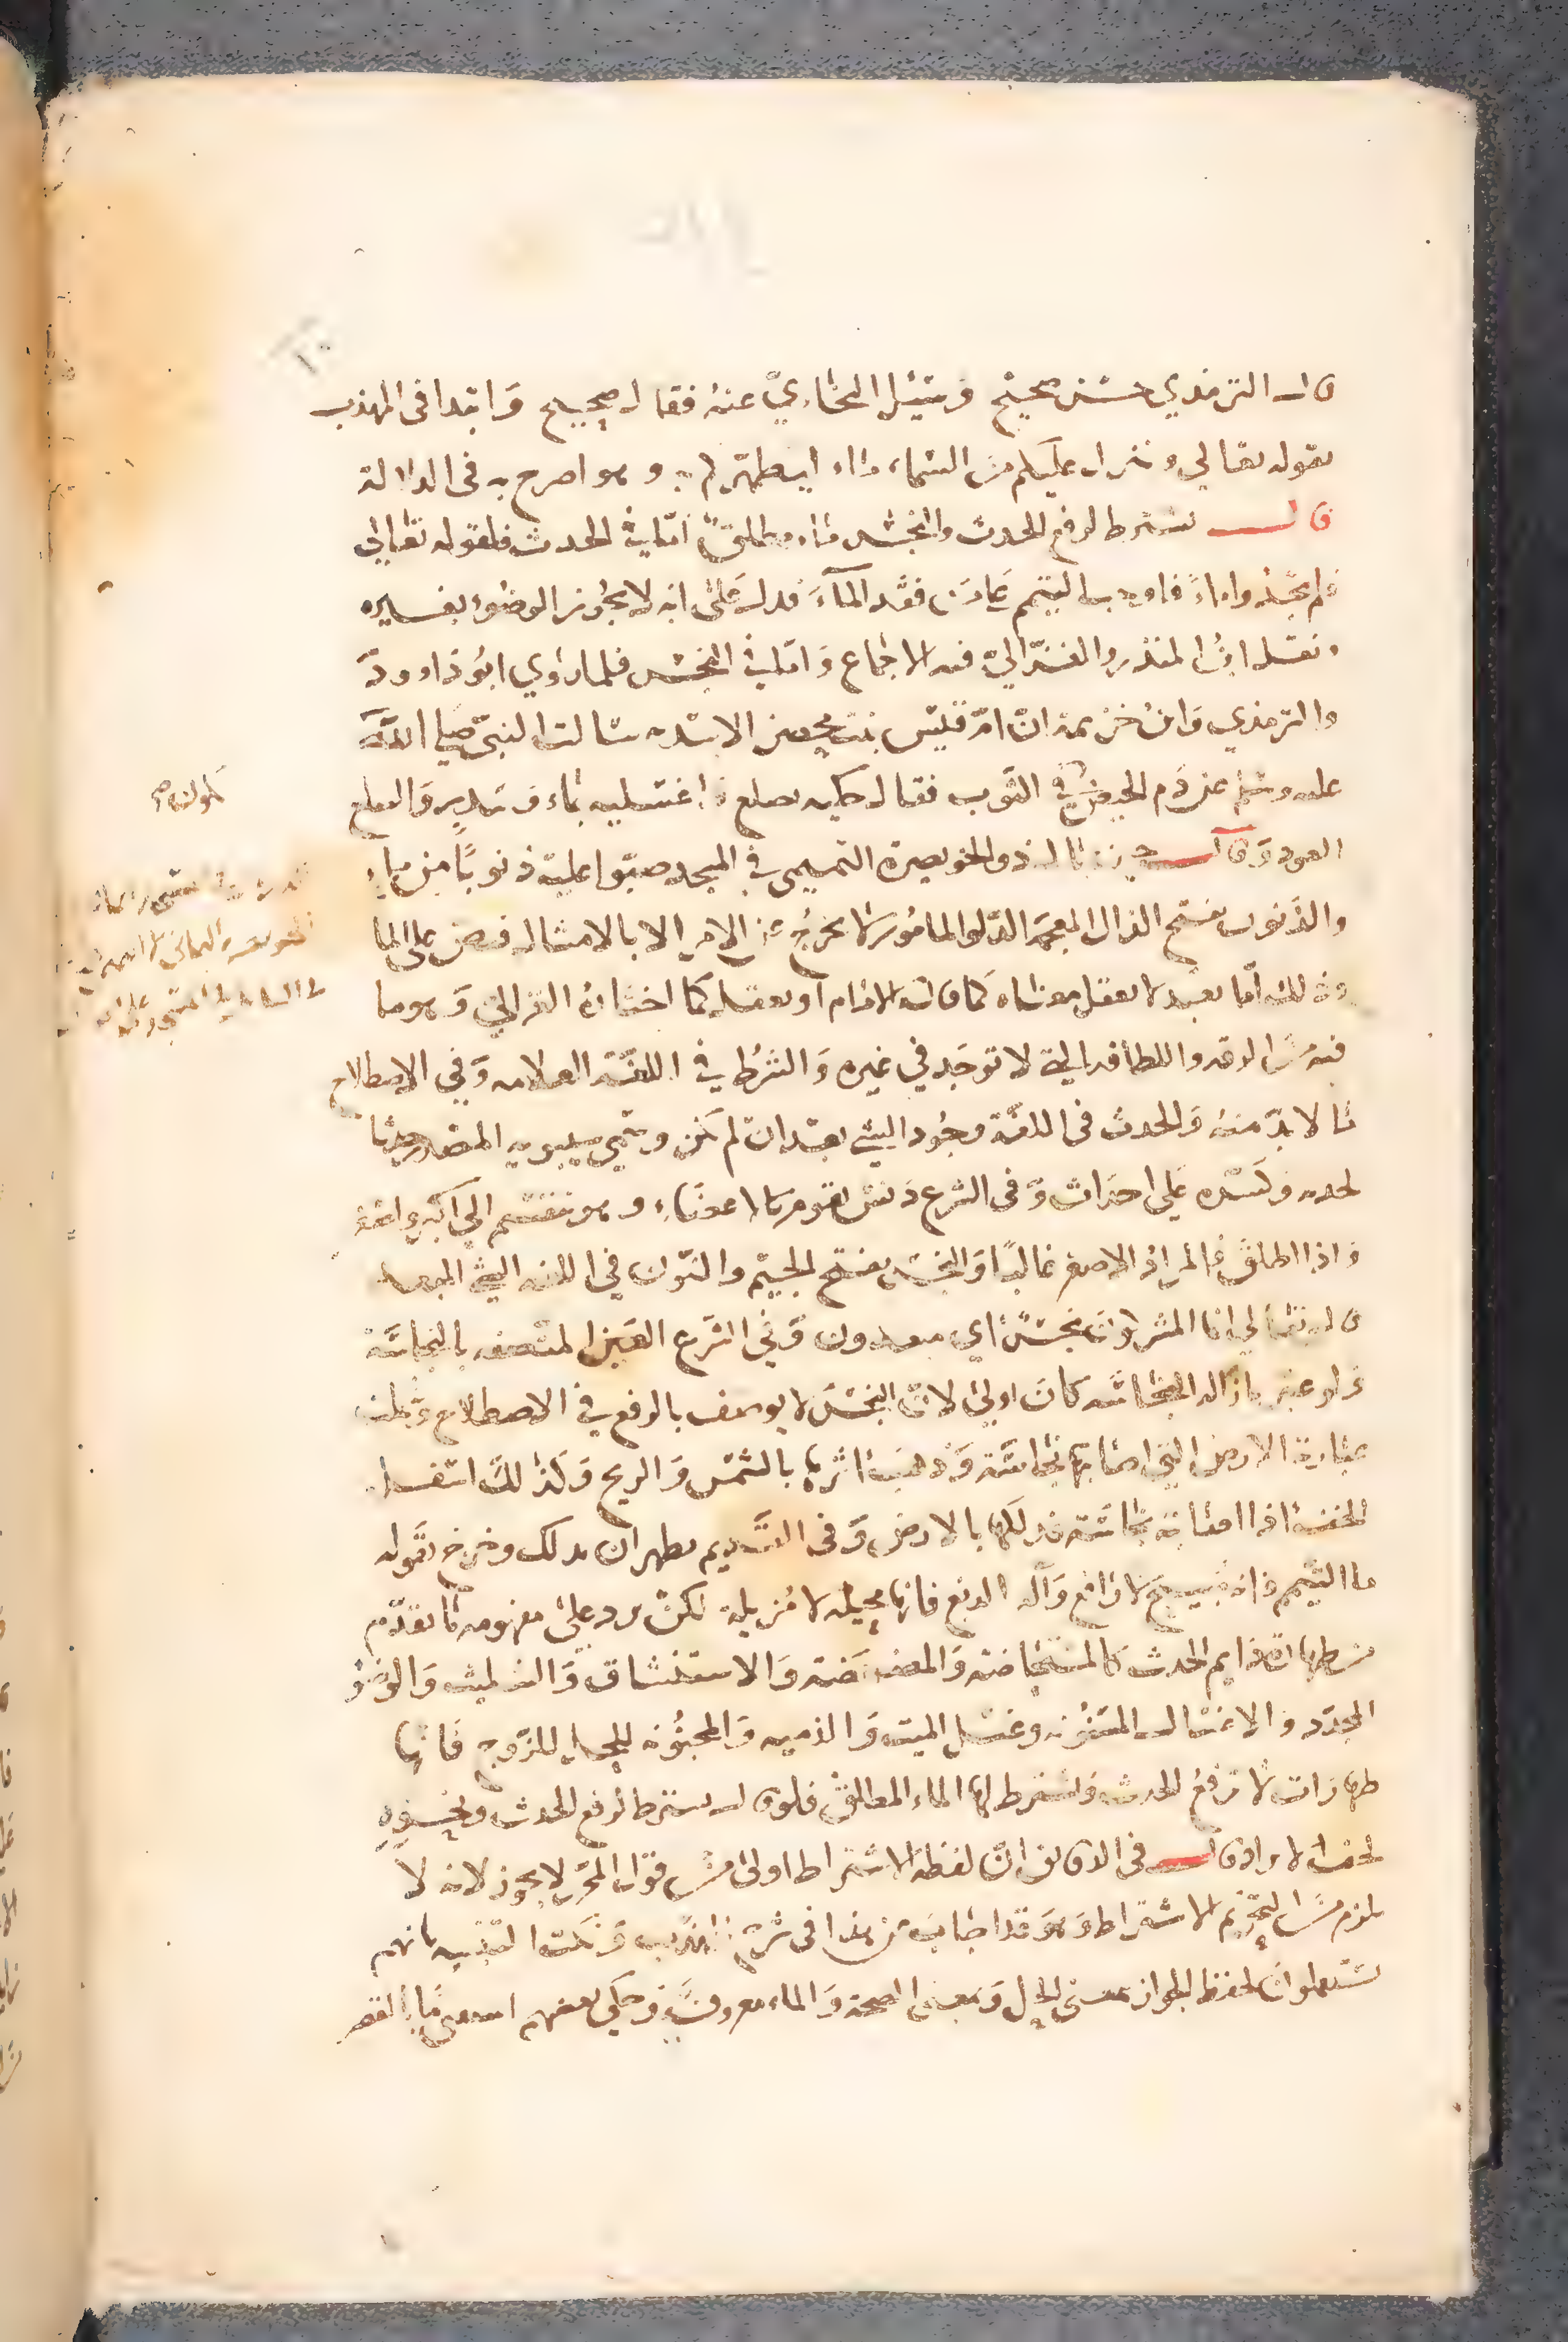 ١٠
قال الترمذي حسن صحيح وسئل البخاري عنه فقال صحيح وابتدا في المهذب
بقوله تعالي وينزل عليكم من السماء ماء ليطهركم به وهو اصرح به في الدلالة
قال يشترط لرفع الحدث والنجس ماء مطلق اما في الحدث فلقوله تعالي
فلم تجدوا ماء فاوجب التيمم علي من فقد الماء فدل علي انه لا يجوز الوضوء بغيره
ونقل ابن المنذر والغزالي فيه الاجماع واما في النجس فلما روي ابو داوود
والترمذي وابن خزيمة ان ام قيس بنت محصن الاسدية سالت النبي صلي الله
عليه وسلم عن دم الحيض في الثوب فقال حكيه بصلع واغسليه بماء وسدر والصلع
العود وقال حين بال ذو الخويصرة التميمي في المسجد صبوا عليه ذنوبا من ماء
والذنوب بفتح الذال المعجمة الدلو المامور لا يخرج عن الامر الا بالامتثال فنص علي الما
وذلك اما تعبد لا يعقل معناه كما قاله الامام او يعقل كما اختاره الغزالي وهو ما
فيه من الرقة واللطافة التي لا توجد في غيره والشرط في اللغة العلامه وفي الاصطلاح
ما لا بد منه والحدث في اللغة وجود الشي بعد ان لم يكن وسمي سيبويه المصدر حدثا
وكسره علي احداث وفي الشرع دنس يقوم بالاعضاء وهو ينقسم الي اكبر واصغر
واذا اطلق فالمراد الاصغر غالبا والنجس بفتح الجيم والنون في اللغه الشي المبعد
قال تعالي انما المشركون نجس اي مبعدون وفي الشرع العين المتصفه بالنجاسة
ولو عبر بازاله النجاسه كان اولي لان النجس لا يوصف بالرفع في الاصطلاح وشملت
عبارته الارض التي اصابتها نجاسة وذهب اثرها بالشمس والريح وكذلك اسفل
الخف اذا اصابته نجاسة فدلكها بالارض وفي القديم يطهران بذلك وخرج بقوله
ما التيمم فانه مبيح لا رافع وآلة الدبغ فانها محيله لا مزيلة لكن يرد علي مفهومه ما تقدم
من طهارة دايم الحدث كالمستحاضة والمضمضة والاستنشاق والتثليث والوضو
المجدد والاغسال المسنونه وغسل الميت والذميه والمجنونه لتحل للزوج فانها
طهارات لا ترفع الحدث ويشترط لها الماء المطلق فلو قال يشترط لرفع الحدث ونحوه
لخف الايراد قال في الدقايق ان لفظة الاشتراط اولي من قول المحرر لا يجوز لانه لا
يلزم من التحريم الاشتراط وهو قد اجاب عن هذا في شرح المهذب ونكت التنبيه بانهم
يستعملون لفظ الجواز بمعني الحل وبمعني الصحة والماء معروف وحكي بعضهم